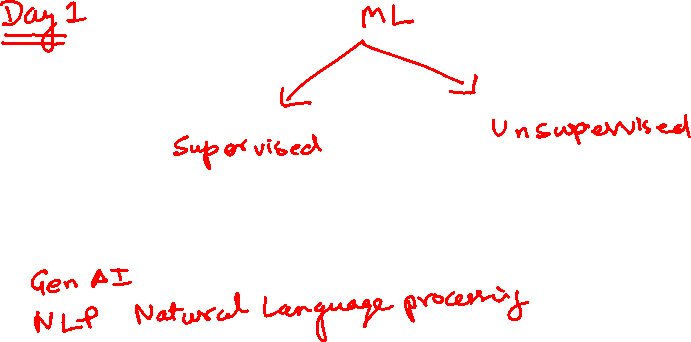 Day 1
ML
Supervised
Unsupervised
Gen AI
NLP Natural Language processing